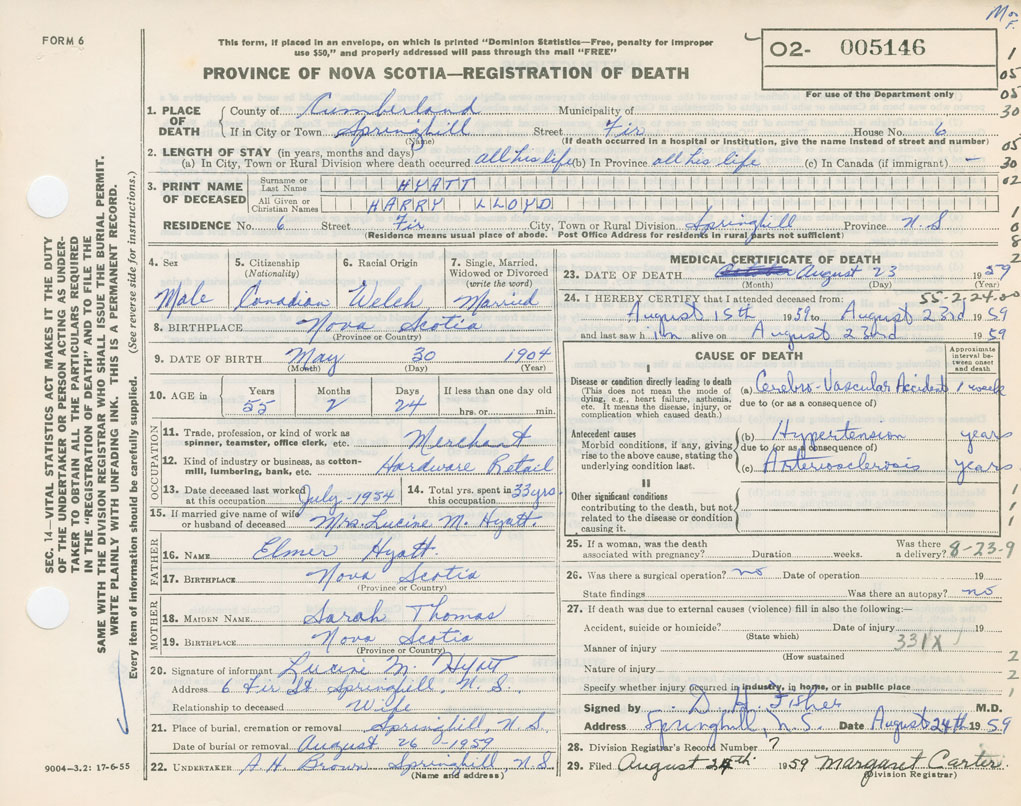 FORM 6
This form, if placed in an envelope, on which is printed "Dominion Statistics—Free, penalty for improper
use $50," and properly addressed will pass through the mail "FREE"
PROVINCE OF NOVA SCOTIA—REGISTRATION OF DEATH
O2- 005146
For use of the Department only
1. PLACE OF DEATH
County of Cumberland Municipality of
If in City or Town Springhill Street Fir House No. 6
(Name) (If death occurred in a hospital or Institution, give the name instead of street and number)
2. LENGTH OF STAY (in years, months and days)
(a) In City, Town or Rural Division where death occurred. all his life (b) In Province all his life (c) In Canada (if immigrant) —
3. PRINT NAME OF DECEASED
Surname or Last Name HYATT
All Given or Christian Names HARRY LLOYD
RESIDENCE No. 6 Street Fir City, Town or Rural Division Springhill Province N.S
(Residence means usual place of abode. Post Office Address for residents in rural parts not sufficient)
4. Sex 5. Citizenship (Nationality) 6. Racial Origin 7. Single, Married, Widowed or Divorced (write the word)
Male Canadian Welch Married
8. BIRTHPLACE Nova Scotia
(Province or Country)
9. DATE OF BIRTH May 30 1904
(Month) (Day) (Year)
10. AGE in Years Months Days If less than one day old
55 2 24 hrs. or min.
OCCUPATION
11. Trade, profession, or kind of work as spinner, teamster, office clerk, etc. Merchant
12. Kind of industry or business, as cotton-mill, lumbering, bank, etc. Hardware Retail
13. Date deceased last worked at this occupation July - 1954 14. Total yrs. spent in this occupation 33 yrs.
15. If married give name of wife or husband of deceased Mrs. Lucine M. Hyatt.
FATHER
16. NAME Elmer Hyatt.
17. BIRTHPLACE Nova Scotia
(Province or Country)
MOTHER
18. MAIDEN NAME Sarah Thomas
19. BIRTHPLACE Nova Scotia
(Province or Country)
20. Signature of informant Lucine M. Hyatt
Address 6 Fir St. Springhill, N.S.,
Relationship to deceased Wife
21. Place of burial, cremation or removal Springhill, N.S.
Date of burial or removal August 26 - 1959
22. UNDERTAKER A.H. Brown Springhill, N.S
(Name and address)
MEDICAL CERTIFICATE OF DEATH
23. DATE OF DEATH August 23 1959
(Month) (Day) (Year)
55-2-24-00
24. I HEREBY CERTIFY that I attended deceased from:
August 15th 1959 to August 23rd 1959
and last saw him alive on August 23rd 1959
CAUSE OF DEATH
Approximate interval between onset and death
I
Disease or condition directly leading to death
(This does not mean the mode of dying, e.g., heart failure, asthenia, etc. It means the disease, injury, or complication which caused death.)
(a) Cerebro-Vascular Accident 1 week
due to (or as a consequence of)
Antecedent causes
Morbid conditions, if any, giving rise to the above cause, stating the underlying condition last.
(b) Hypertension years
due to (or as a consequence of)
(c) Arteriosclerosis years
II
Other significant conditions contributing to the death, but not related to the disease or condition causing it.
25. If a woman, was the death associated with pregnancy? Duration weeks. Was there a delivery? 8-23-9
26. Was there a surgical operation? no Date of operation 19
State findings Was there an autopsy? no
27. If death was due to external causes (violence) fill in also the following:—
Accident, suicide or homicide? Date of injury 19
(State which)
Manner of injury 331X
(How sustained
Nature of injury
Specify whether injury occurred in industry, in home, or in public place
Signed by D. H. Fisher M.D.
Address Springhill, N.S. Date August 24th 1959
28. Division Registrar's Record Number 7
29. Filed August 24th 1959 Margaret Carter.
(Division Registrar)
9004—3.2: 17-6-55
SEC. 14—VITAL STATISTICS ACT MAKES IT THE DUTY
OF THE UNDERTAKER OR PERSON ACTING AS UNDER-
TAKER TO OBTAIN ALL THE PARTICULARS REQUIRED
IN THE "REGISTRATION OF DEATH" AND TO FILE THE
SAME WITH THE DIVISION REGISTRAR WHO SHALL ISSUE THE BURIAL PERMIT.
WRITE PLAINLY WITH UNFADING INK. THIS IS A PERMANENT RECORD.
Every item of information should be carefully supplied. (See reverse side for instructions.)
1
05
05
30
05
30
02
1
0
8
2
1
1
1
2
2
1